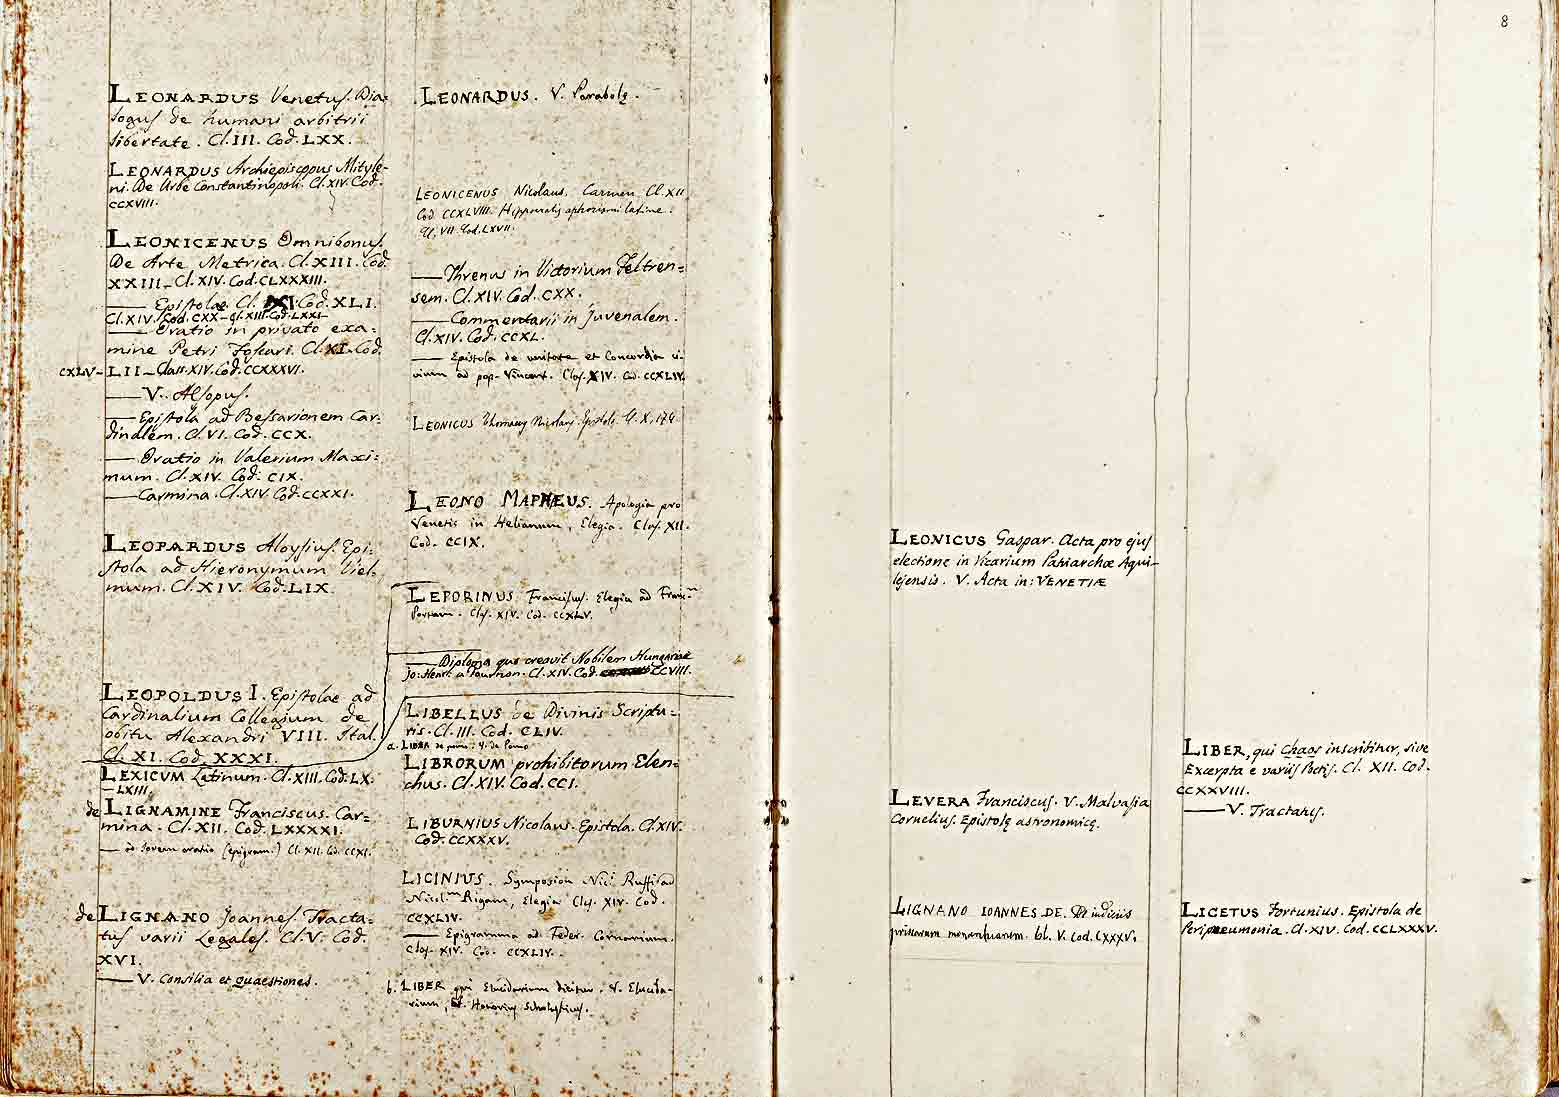 8
LEONARDUS Venetus. Dia=
logus de humani arbitrii
libertate. Cl. III. Cod. LXX.
LEONARDUS Archiepiscopus Mityle-
ni. De Urbe Constantinopoli. Cl. XIV. Cod.
CCXVIII.
LEONICENUS Omnibonus.
De Arte Metrica. Cl. XIII. Cod.
XXIII_Cl. XIV. Cod. CLXXXIII.
—— Epistolae. Cl. XI. Cod. XLI.
Cl. XIV. Cod. CXX_Cl. XIII. Cod. LXXI_
—— Oratio in privato exa=
mine Petri Foscari. Cl. XI. Cod.
CXLV- LII_Class. XIV. Cod. CCXXXVI.
—— V. Aesopus.
—— Epistola ad Bessarionem Car=
dinalem. Cl. VI. Cod. CCX.
—— Oratio in Valerium Maxi=
mum. Cl. XIV. Cod. CIX.
—— Carmina. Cl. XIV. Cod. CCXXI.
LEOPARDUS Aloysius. Epi=
stola ad Hieronymum Viel=
mum. Cl. XIV. Cod. LIX.
LEOPOLDUS I. Epistolae ad
Cardinalium Collegium de
obitu Alexandri VIII. Ital.
Cl. XI. Cod. XXXI.
LEXICUM Latinum. Cl. XIII. Cod. LX-
—LXIII.
de LIGNAMINE Franciscus. Car=
mina. Cl. XII. Cod. LXXXXI.
— ad Iovem oratio (epigram.) Cl. XII. Cod. CCXI.
de LIGNANO Joannes. Tracta=
tus varii Legales. Cl. V. Cod.
XVI.
—— V. Consilia et quaestiones.
LEONARDUS. V. Parabolę.
LEONICENUS Nicolaus. Carmen Cl. XII
Cod. CCXLVIII. Hippocratis aphorismi latine.
Cl. VII. Cod. LXVII.
—— Threnus in Victorium Feltren=
sem. Cl. XIV. Cod. CXX.
—— Commentarii in Juvenalem.
Cl. XIV. Cod. CCXL.
—— Epistola de unitate et Concordia ci-
vium ad pop. Vincent. Class. XIV. Cod. CCXLIV.
LEONICUS Thomaeus Nicolaus. Epistolę. Cl. X, 174.
LEONO MAPHEUS. Apologia pro
Venetis in Helianum, Elegia. Class. XII.
Cod. CCIX.
LEPORINUS Franciscus. Elegia ad Franc.m
Portam. Class. XIV. Cod. CCXLV.
—— Diploma quo creavit Nobilem Hungariae
Jo: Henr. a Tournon. Cl. XIV. Cod. CCVIII.
LIBELLUS de Divinis Scriptu=
ris. Cl. III. Cod. CLIV.
a. LIBER de pomo. V. de Pomo
LIBRORUM prohibitorum Elen=
chus. Cl. XIV. Cod. CCI.
LIBURNIUS Nicolaus. Epistola. Cl. XIV.
Cod. CCXXXV.
LICINIUS. Symposion Nic. Ruffi ad
Nicol.m Rigam, Elegia Class. XIV. Cod.
CCXLIV.
—— Epigramma ad Feder. Cornarium.
Class. XIV. Cod. CCXLIV.
b. LIBER qui Elucidarium dicitur. V. Elucida-
rium, et Honorius Scholasticus.
LEONICUS Gaspar. Acta pro ejus
electione in Vicarium Patriarchæ Aqui-
lejensis. V. Acta in: VENETIÆ
LEVERA Franciscus. V. Malvasia
Cornelius. Epistolę astronomicę.
LIGNANO IOANNES DE. De indiciis
V. Cod. LXXXV.
LIBER, qui Chaos inscribitur, sive
Excerpta e variis Poetis. Cl. XII. Cod.
CCXXVIII.
—— V. Tractatus.
LICETUS Fortunius. Epistola de
Peripneumonia. Cl. XIV. Cod. CCLXXXV.